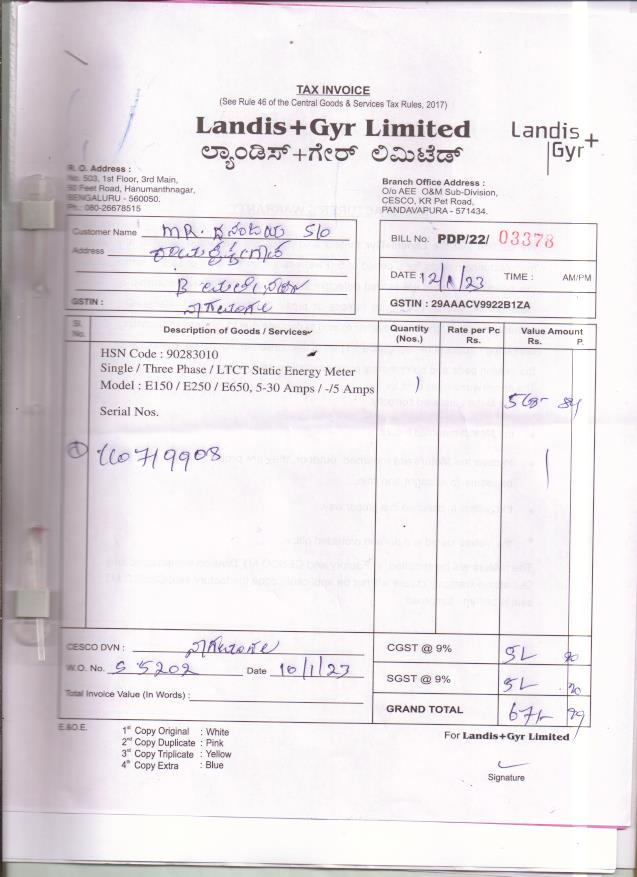 TAX INVOICE
(See Rule 46 of the Central Goods & Services Tax Rules, 2017)
Landis+Gyr Limited
ಲ್ಯಾಂಡಿಸ್+ಗೇರ್ ಲಿಮಿಟೆಡ್
Landis+
Gyr
R. O. Address :
No. 503, 1st Floor, 3rd Main,
50 Feet Road, Hanumanthnagar,
BENGALURU - 560050.
Ph.: 080-26678515
Branch Office Address :
O/o AEE O&M Sub-Division,
CESCO, KR Pet Road,
PANDAVAPURA - 571434.
Customer Name MR. S/O
Address
B
GSTIN :
BILL No. PDP/22/ 03378
DATE 12/1/23 TIME : AM/PM
GSTIN : 29AAACV9922B1ZA
Sl. No. Description of Goods / Services Quantity (Nos.) Rate per Pc Rs. Value Amount Rs. P.
HSN Code : 90283010
Single / Three Phase / LTCT Static Energy Meter
Model : E150 / E250 / E650, 5-30 Amps / -/5 Amps 1
Serial Nos.
① 110719908
CESCO DVN :
W.O. No. S 5202 Date 10/1/23
Total Invoice Value (In Words) :
CGST @ 9%
SGST @ 9%
GRAND TOTAL
E.&O.E.
1st Copy Original : White
2nd Copy Duplicate : Pink
3rd Copy Triplicate : Yellow
4th Copy Extra : Blue
For Landis+Gyr Limited
Signature